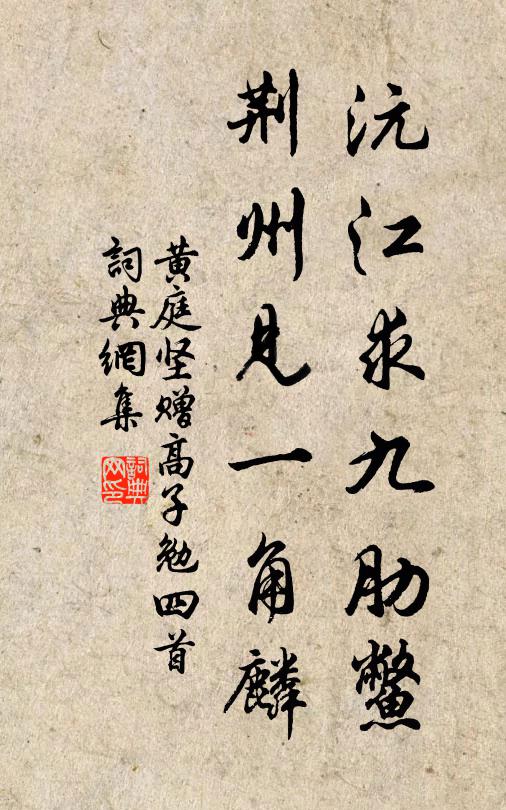 沅江求九肋鱉
荆州見一角麟
黄庭坚赠高子勉四首
詞典網集
詞典
网印